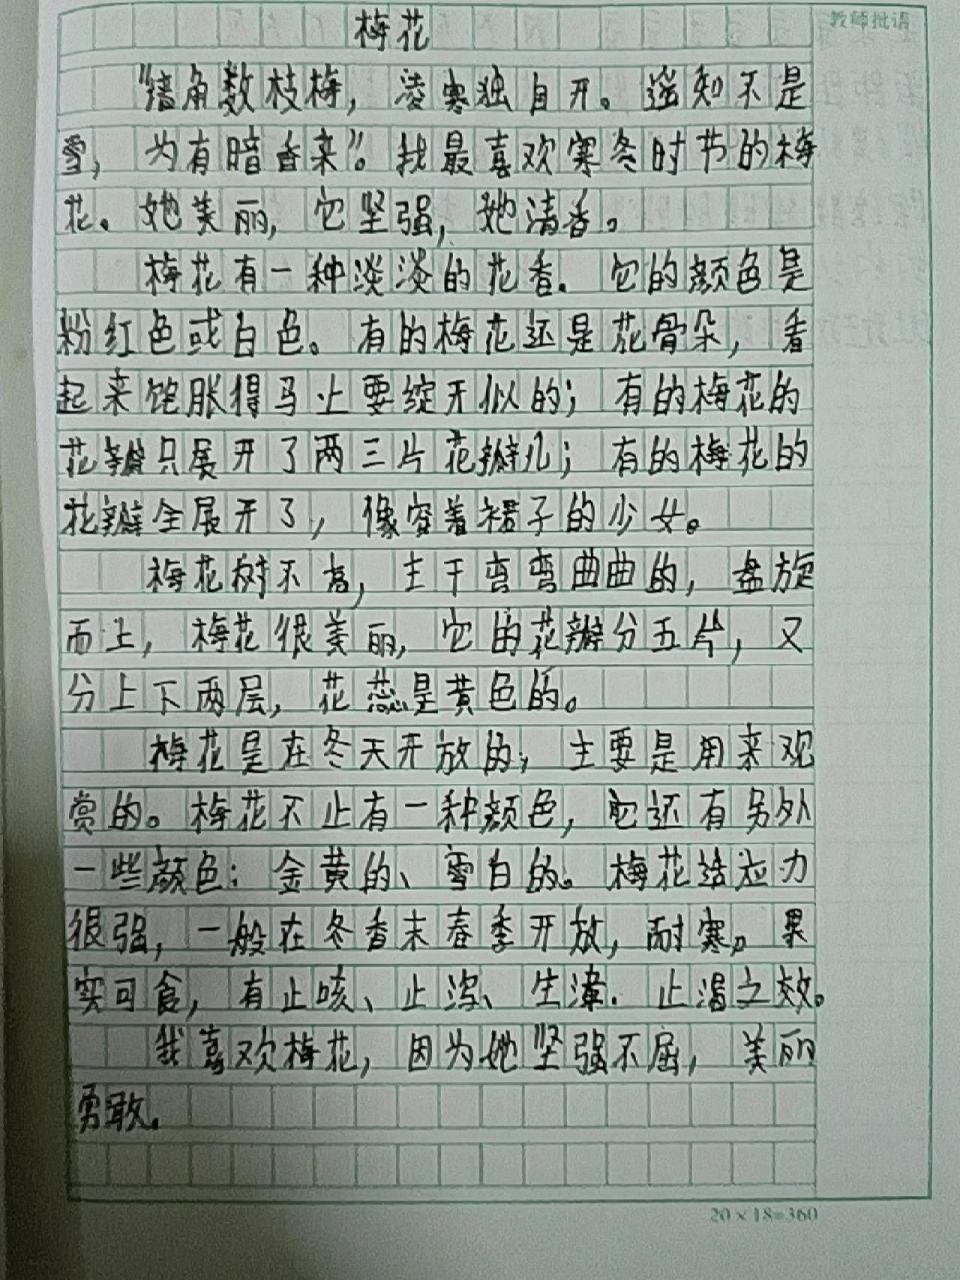 梅花
教师批语
“墙角数枝梅，凌寒独自开。遥知不是
雪，为有暗香来”。我最喜欢寒冬时节的梅
花。她美丽，它坚强，她清香。
梅花有一种淡淡的花香．它的颜色是
粉红色或白色。有的梅花还是花骨朵，看
起来饱胀得马上要绽开似的；有的梅花的
花瓣只展开了两三片花瓣儿；有的梅花的
花瓣全展开了，像穿着裙子的少女。
梅花树不高，主干弯弯曲曲的，盘旋
而上，梅花很美丽，它的花瓣分五片，又
分上下两层，花蕊是黄色的。
梅花是在冬天开放的，主要是用来观
赏的。梅花不止有一种颜色，它还有另外
一些颜色：金黄的、雪白的。梅花适应力
很强，一般在冬香末春季开放，耐寒。果
实可食，有止咳、止泻、生津．止渴之效。
我喜欢梅花，因为她坚强不屈，美丽
勇敢。
20×18=360